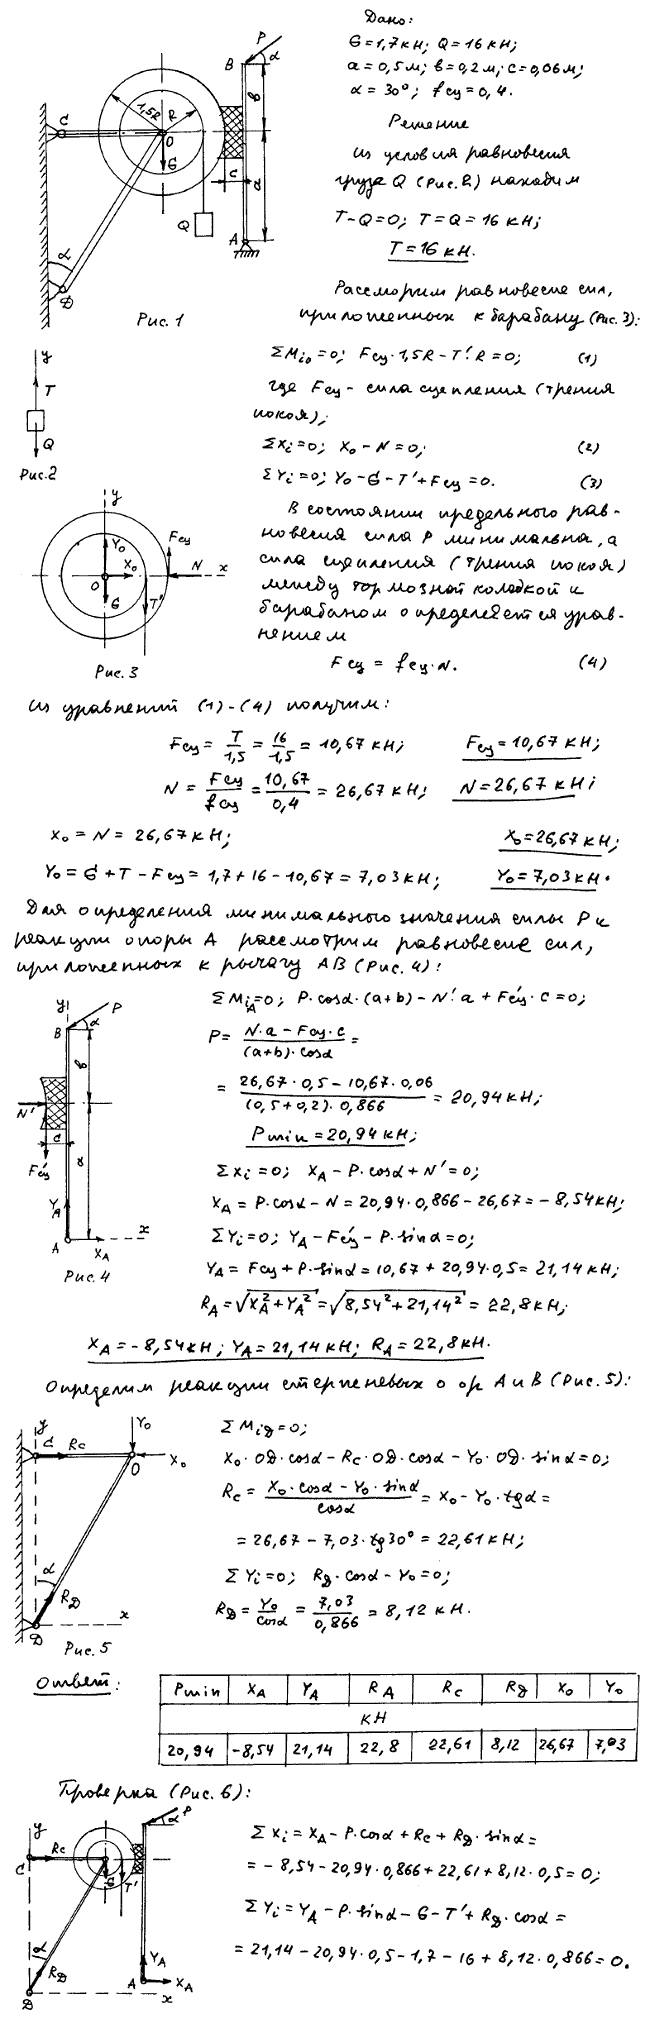 Дано:
G=1,7кН; Q=16кН;
a=0,5м; b=0,2м; c=0,06м;
α=30°; fсц=0,4.
Решение
Из условия равновесия
груза Q (Рис.2) находим
T-Q=0; T=Q=16 кН;
T=16 кН.
P
α
B
b
C
1,5R
R
O
G
c
a
Q
A
α
D
Рис. 1
Рассмотрим равновесие сил,
приложенных к барабану (Рис.3):
y
T
Q
Рис.2
ΣMio=0; Fсц·1,5R-T'·R=0; (1)
где Fсц - сила сцепления (трения
покоя);
ΣXi=0; Xo-N=0; (2)
ΣYi=0; Yo-G-T'+Fсц=0. (3)
y
Fсц
Yo
Xo
N
x
O
G
T'
Рис. 3
В состоянии предельного рав-
новесия сила P минимальна, а
сила сцепления (трения покоя)
между тормозной колодкой и
барабаном определяется урав-
нением
Fсц = fсц·N. (4)
Из уравнений (1)-(4) получим:
Fсц = T/1,5 = 16/1,5 = 10,67 кН; Fсц=10,67 кН;
N = Fсц/fсц = 10,67/0,4 = 26,67 кН; N=26,67 кН;
Xo = N = 26,67 кН; Xo=26,67 кН;
Yo = G+T-Fсц = 1,7+16-10,67 = 7,03 кН; Yo=7,03 кН.
Для определения минимального значения силы P и
реакции опоры A рассмотрим равновесие сил,
приложенных к рычагу AB (Рис. 4):
y
P
α
B
b
N'
c
a
F'сц
YA
A
XA
x
Рис. 4
ΣMiA=0; P·cosα·(a+b)-N'·a+F'сц·c=0;
P = (N·a-Fсц·c)/((a+b)·cosα) =
= (26,67·0,5-10,67·0,06)/((0,5+0,2)·0,866) = 20,94 кН;
Pmin=20,94 кН;
Σxi=0; XA-P·cosα+N'=0;
XA=P·cosα-N=20,94·0,866-26,67=-8,54кН;
ΣYi=0; YA-F'сц-P·sinα=0;
YA=Fсц+P·sinα=10,67+20,94·0,5=21,14 кН;
RA=√(XA²+YA²)=√(8,54²+21,14²)=22,8кН;
XA=-8,54кН; YA=21,14 кН; RA=22,8 кН.
Определим реакции стержневых опор A и B (Рис. 5):
y
Yo
C
Rc
O
Xo
α
RD
D
x
Рис. 5
ΣMiD=0;
Xo·OD·cosα-Rc·OD·cosα-Yo·OD·sinα=0;
Rc = (Xo·cosα-Yo·sinα)/cosα = Xo-Yo·tgα=
=26,67-7,03·tg30°=22,61 кН;
ΣYi=0; RD·cosα-Yo=0;
RD = Yo/cosα = 7,03/0,866 = 8,12 кН.
Ответ:
Pmin XA YA RA Rc RD Xo Yo
кН
20,94 -8,54 21,14 22,8 22,61 8,12 26,67 7,03
Проверка (Рис. 6):
y
P
α
C
Rc
G
T'
α
RD
D
YA
A
XA
x
Σxi=XA-P·cosα+Rc+RD·sinα=
=-8,54-20,94·0,866+22,61+8,12·0,5=0;
ΣYi=YA-P·sinα-G-T'+RD·cosα=
=21,14-20,94·0,5-1,7-16+8,12·0,866=0.